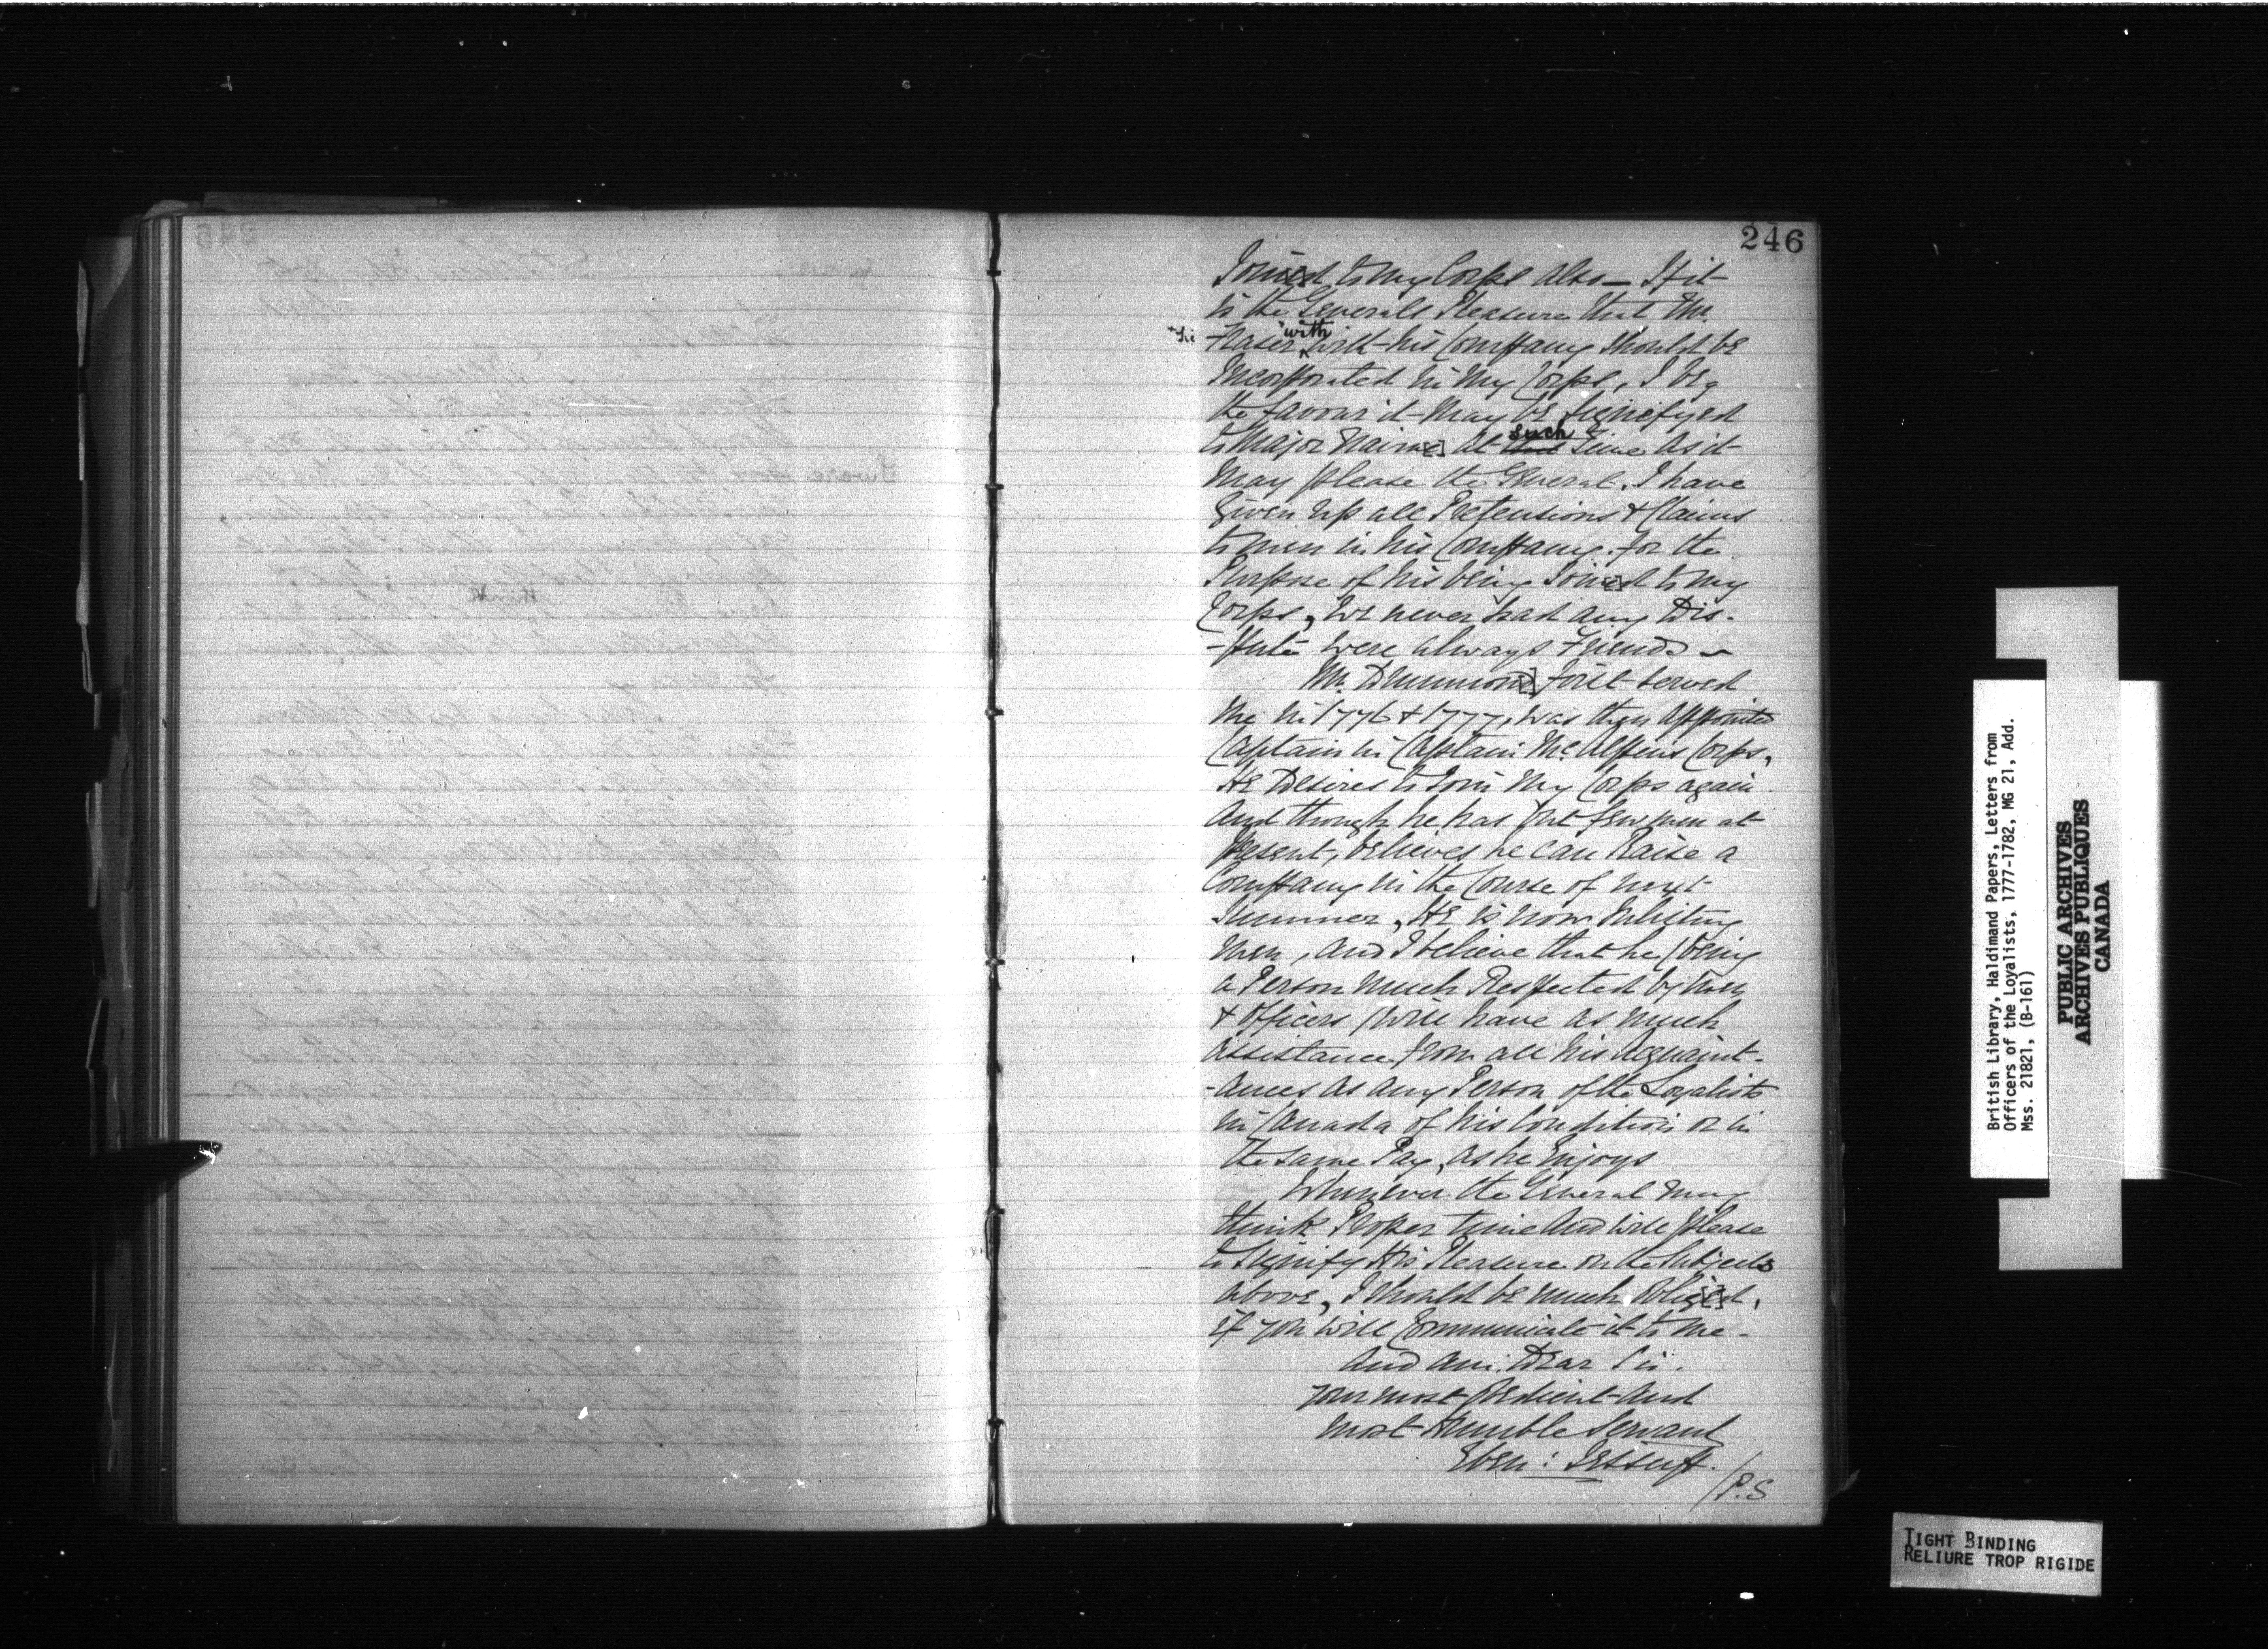 246
Join[e]d to my Corps also — If it
is the Generals Pleasure that Mr.
+ Sic Fraser with with his Company should be
Incorporated in my Corps, I beg
the favour it may be Signefyed
to Major Nairn[e] at this such Time as it
may please the General. I have
Given up all Pretensions & Claims
to men in his Company for the
Purpose of his being Join[e]d to my
Corps, We never had any Dis-
-pute were always Friends —
Mr. Drummon[d] first served
me in 1776 & 1777, was then appointed
Captain in Captain McAlpins Corps,
He Desires to Join my Corps again
And though he has but few men at
Present, believes he can Raise a
Company in the Course of next
Summer, He is now Inlisting
men, and I believe that he (being
a Person much Respected by men
& Officers) will have as much
Assistance from all his Acquaint-
-ances as any Person of the Loyalists
in Canada of his Condition or in
the same Pay, as he Enjoys
Whenever the General may
think Proper time and will please
to Signify His Pleasure on the Subjects
above, I should be much oblig[e]d,
if you will Communicate it to me -
And am. Dear Sir.
your most obedient and
most Humble Servant
Eben: Jessup.
/P.S
British Library, Haldimand Papers, Letters from
Officers of the Loyalists, 1777-1782, MG 21, Add.
Mss. 21821, (B-161)
PUBLIC ARCHIVES
ARCHIVES PUBLIQUES
CANADA
TIGHT BINDING
RELIURE TROP RIGIDE